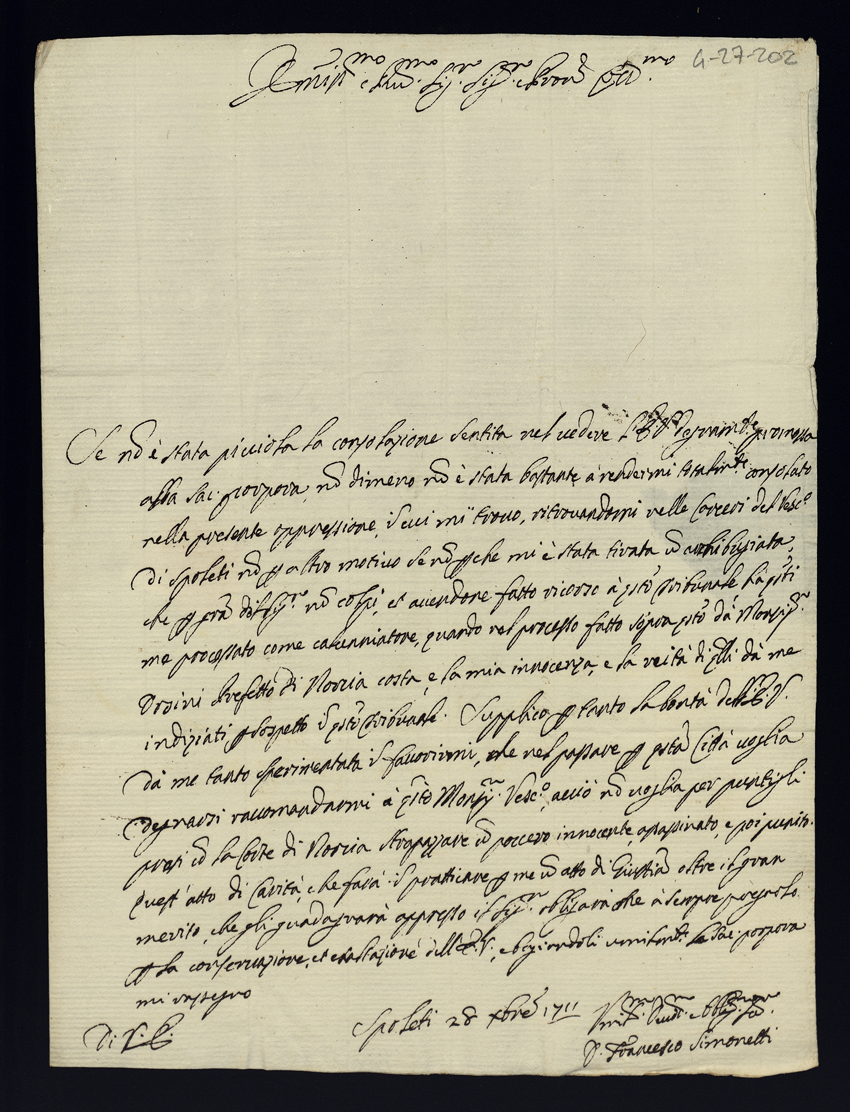 4-27-202
Emin.mo e Rev.mo Sig.re Sig.re e Pron Col.mo
Se nõ è stata picciola la consolazione sentita nel vedere l'E.V. degnam.te promossa
alla Sac. Porpora, nõ dimeno nõ è stata bastante à rendermi totalm.te consolato
nella presente oppressione, ĩ cui mi trovo, ritrovandomi nelle Carceri del Vesc.o
di Spoleti nõ p altro motivo se nõ pche mi è stata tirata ũ archibugiata,
che p grã del Sig.re nõ colpì, et avendone fatto ricorso à q̃sto Tribunale hà q̃sti
me processato come calunniatore, quando nel processo fatto sopra q̃sto dà Monsig.re
Orsini Prefetto di Norcia costa, e la mia innocenza, e la reità di q̃lli dà me
indiziati p sospetto ĩ q̃sto Tribunale. Supplico p tanto la bontà dell'E.V.
dà me tanto sperimentata ĩ favorirmi, che nel passare p q̃sta Città voglia
degnarsi raccomandarmi à q̃sto Monsig.re Vesc.o, acciò nõ voglia per puntigli
presi cõ la Corte di Norcia strapazzare ũ povero innocente, assassinato, e poi punito.
Quest'atto di Carità, che farà ĩ pratticare p me ũ atto di Giustizia oltre il gran
merito, che gli guadagnarà appresso il Sig.re obligarà me à sempre pregarlo
p la conservazione, et esaltazione dell'E.V., e bagiandoli umilm.te la Sac. porpora
mi rassegno
Di V.E.
Spoleti 28 Xbre 1711
Umil.mo Dev.mo et Oblig.mo Ser.re
D. Francesco Simonetti